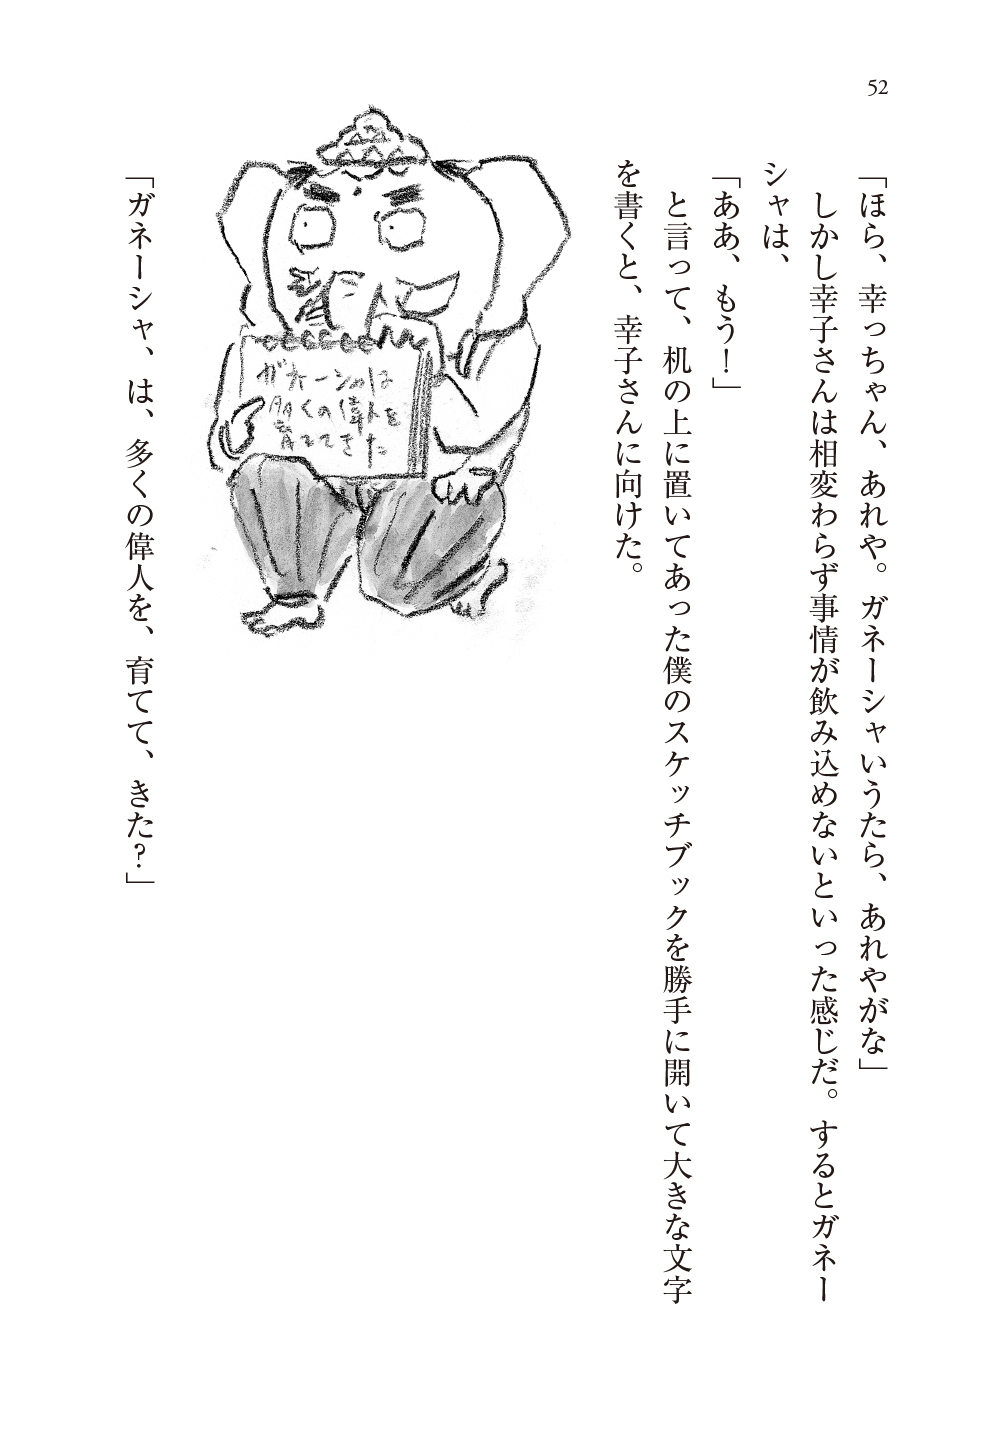 52
「ほら、幸っちゃん、あれや。ガネーシャいうたら、あれやがな」
しかし幸子さんは相変わらず事情が飲み込めないといった感じだ。するとガネー
シャは、
「ああ、もう！」
と言って、机の上に置いてあった僕のスケッチブックを勝手に開いて大きな文字
を書くと、幸子さんに向けた。
ガネーシャは
多くの偉人を
育ててきた
「ガネーシャ、は、多くの偉人を、育てて、きた？」